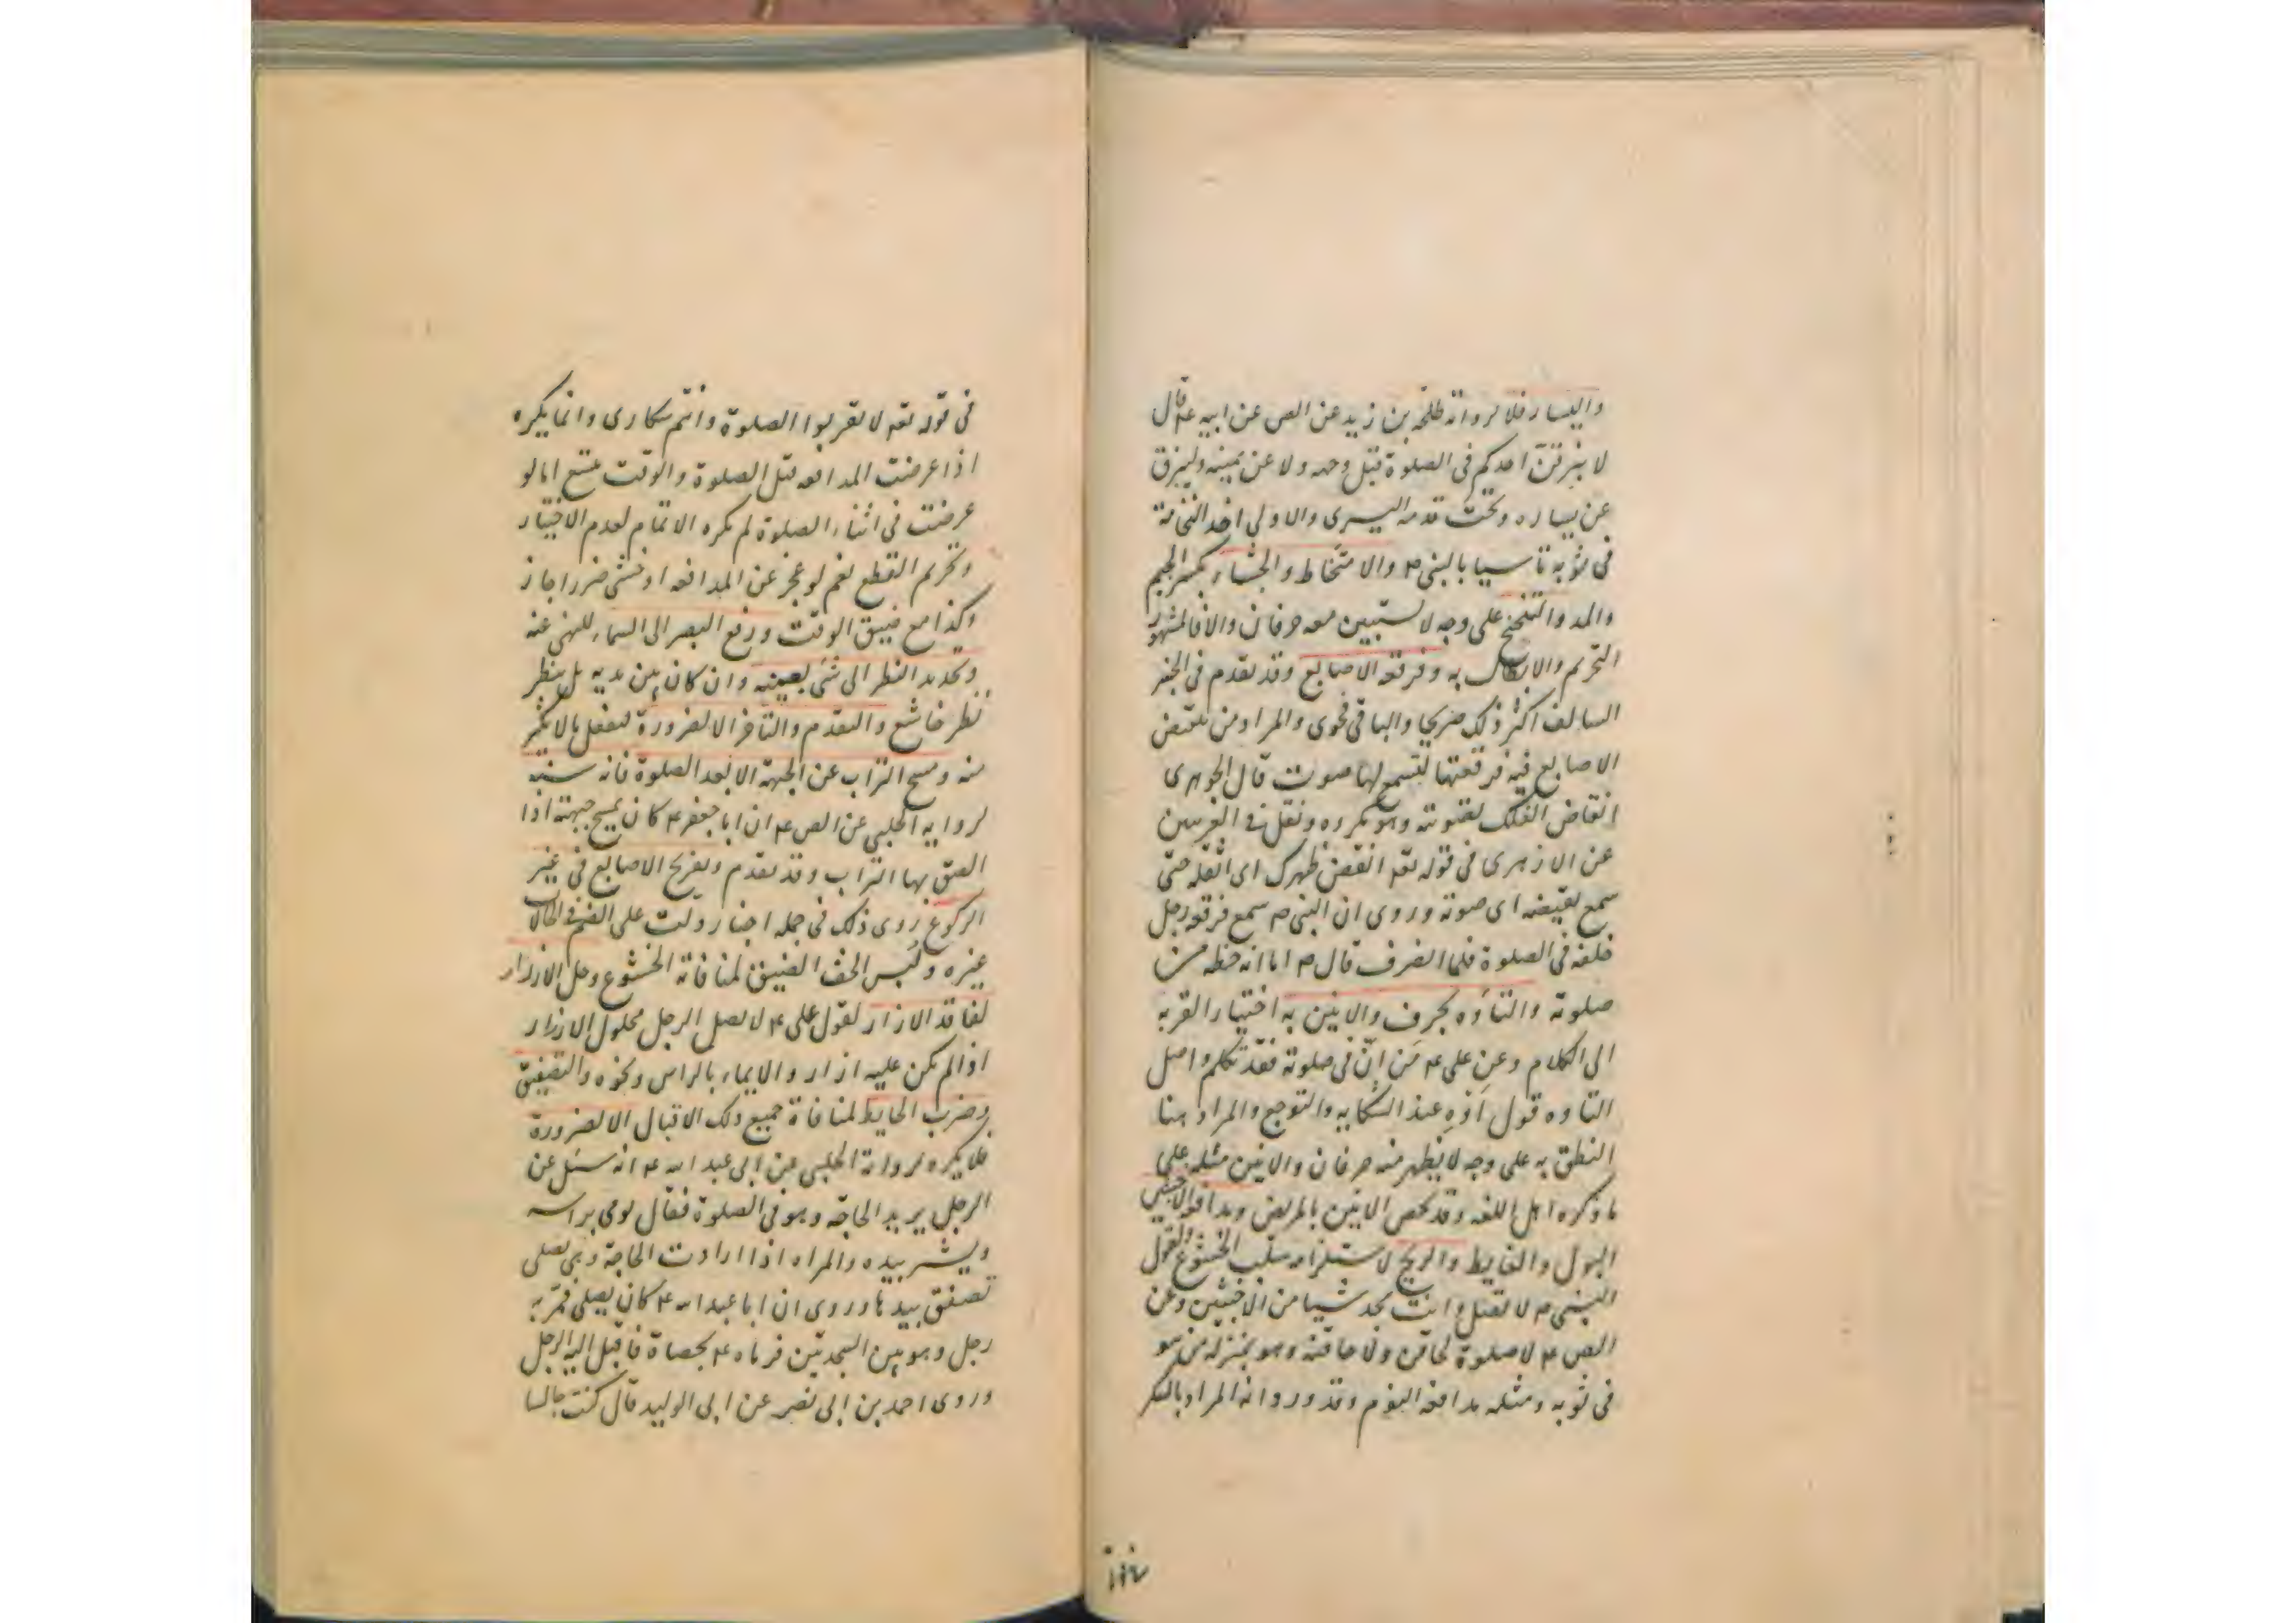 واليسار فلا لرواية طلحة بن زيد عن الص عن ابيه ع قال
لا يبزقن احدكم فى الصلوة قبل وجهه ولا عن يمينه وليبزق
عن يساره وتحت قدمه اليسرى والاولى اخذ النخامة
فى ثوبه تاسيا بالنبى ص والامتخاط والجشاء بكسر الجيم
والمد والتنحنح على وجه لا يستبين معه حرفان والا فالمشهور
التحريم والابطال به وفرقعة الاصابع وقد تقدم فى الخبر
السالف اكثر ذلك صريحا والباقى فحوى والمراد من نقيض
الاصابع فيه فرقعتها لتسمع لها صوت قال الجوهرى
انقاض العلك تصويته وهو مكروه ونقل فى الغريبين
عن الازهرى فى قوله تعه انقض ظهرك اى اثقله حتى
سمع نقيضه اى صوته وروى ان النبى ص سمع فرقعة رجل
خلفه فى الصلوة فلما انصرف قال ص اما انه حظه من
صلوته والتاوه بحرف والانين به اختيارا لقربه
الى الكلام وعن على ع من انّ فى صلوته فقد تكلم واصل
التاوه قول اوّه عند الشكاية والتوجع والمراد هنا
النطق به على وجه لا يظهر منه حرفان والانين مثله على
ما ذكره اهل اللغه وقد يخص الانين بالمريض ومدافعة الاخبثين
البول والغايط والريح لاستلزامه سلب الخشوع ولقول
النبى ص لا تصل وانت تجد شيئا من الاخبثين وعن
الص ع لا صلوة لحاقن ولا حاقنة وهو بمنزلة من هو
فى ثوبه ومثله مدافعة النوم وقد ورد انه المراد بالسكر
فى قوله تعه لا تقربوا الصلوة وانتم سكارى وانما يكره
اذا عرضت المدافعه قبل الصلوة والوقت متسع اما لو
عرضت فى اثناء الصلوة لم يكره الاتمام لعدم الاختيار
وتحريم القطع نعم لو عجز عن المدافعه او خشى ضررا جاز
وكذا مع ضيق الوقت ورفع البصر الى السماء للنهى عنه
وتحديد النظر الى شئ بعينه وان كان بين يديه بل ينظر
نظر خاشع والتقدم والتاخر الا لضرورة
منه ومسح التراب عن الجبهة الا بعد الصلوة فانه سنة
لرواية الحلبى عن الص ع ان ابا جعفر ع كان يمسح جبهته اذا
الصق بها التراب وقد تقدم وتفريج الاصابع فى غير
الركوع روى ذلك فى جمله اخبار ودلت على الضم فى
غيره ولبس الخف الضيق لمنافاته الخشوع وحل الازرار
لفاقد الازار لقول على ع لا يصلى الرجل محلول الازرار
اذا لم يكن عليه ازار والايماء بالراس ونحوه والتصفيق
وضرب الحايط لمنافاة جميع ذلك الاقبال الا لضرورة
فلا يكره لرواية الحلبى عن ابى عبد الله ع انه سئل عن
الرجل يريد الحاجة وهو فى الصلوة فقال يومى براسه
ويشير بيده والمراه اذا ارادت الحاجة وهى تصلى
تصفق بيدها وروى ان ابا عبد الله ع كان يصلى فمر به
رجل وهو بين السجدتين فرماه ع بحصاة فاقبل اليه الرجل
وروى احمد بن ابى نصر عن ابى الوليد قال كنت جالسا